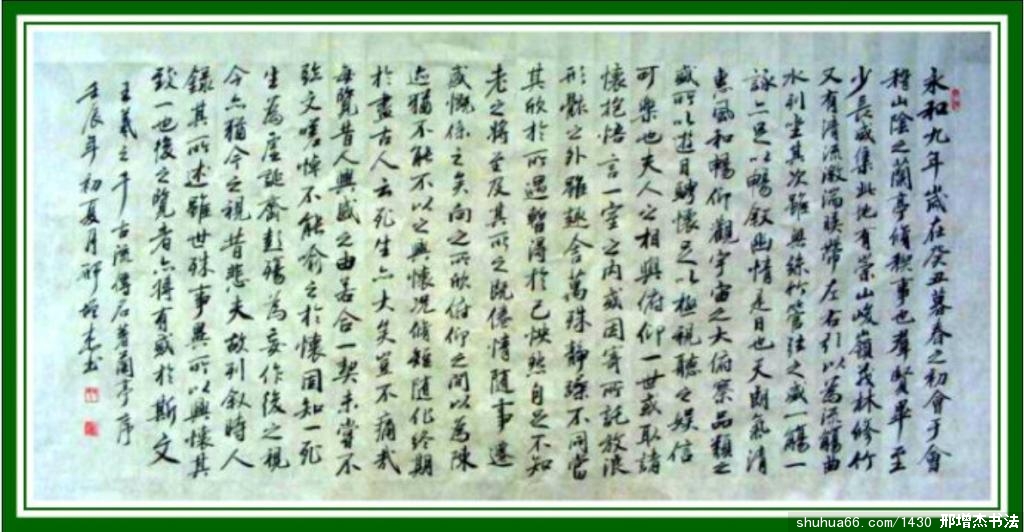 永和九年歲在癸丑暮春之初會于會
稽山陰之蘭亭脩稧事也羣賢畢至
少長咸集此地有崇山峻領茂林修竹
又有清流激湍暎帶左右引以為流觴曲
水列坐其次雖無絲竹管弦之盛一觴一
詠亦足以暢叙幽情是日也天朗氣清
惠風和暢仰觀宇宙之大俯察品類之
盛所以遊目騁懷足以極視聽之娛信
可樂也夫人之相與俯仰一世或取諸
懷抱悟言一室之內或因寄所託放浪
形骸之外雖趣舍萬殊靜躁不同當
其欣於所遇暫得於己怏然自足不知
老之將至及其所之既倦情隨事遷
感慨係之矣向之所欣俯仰之間以為陳
迹猶不能不以之興懷況脩短隨化終期
於盡古人云死生亦大矣豈不痛哉
每覽昔人興感之由若合一契未嘗不
臨文嗟悼不能喻之於懷固知一死
生為虛誕齊彭殤為妄作後之視
今亦猶今之視昔悲夫故列叙時人
錄其所述雖世殊事異所以興懷其
致一也後之覽者亦將有感於斯文
王羲之千古流傳名著蘭亭序
壬辰年初夏月邢增杰書
shuhua66.com/1430 邢增杰书法